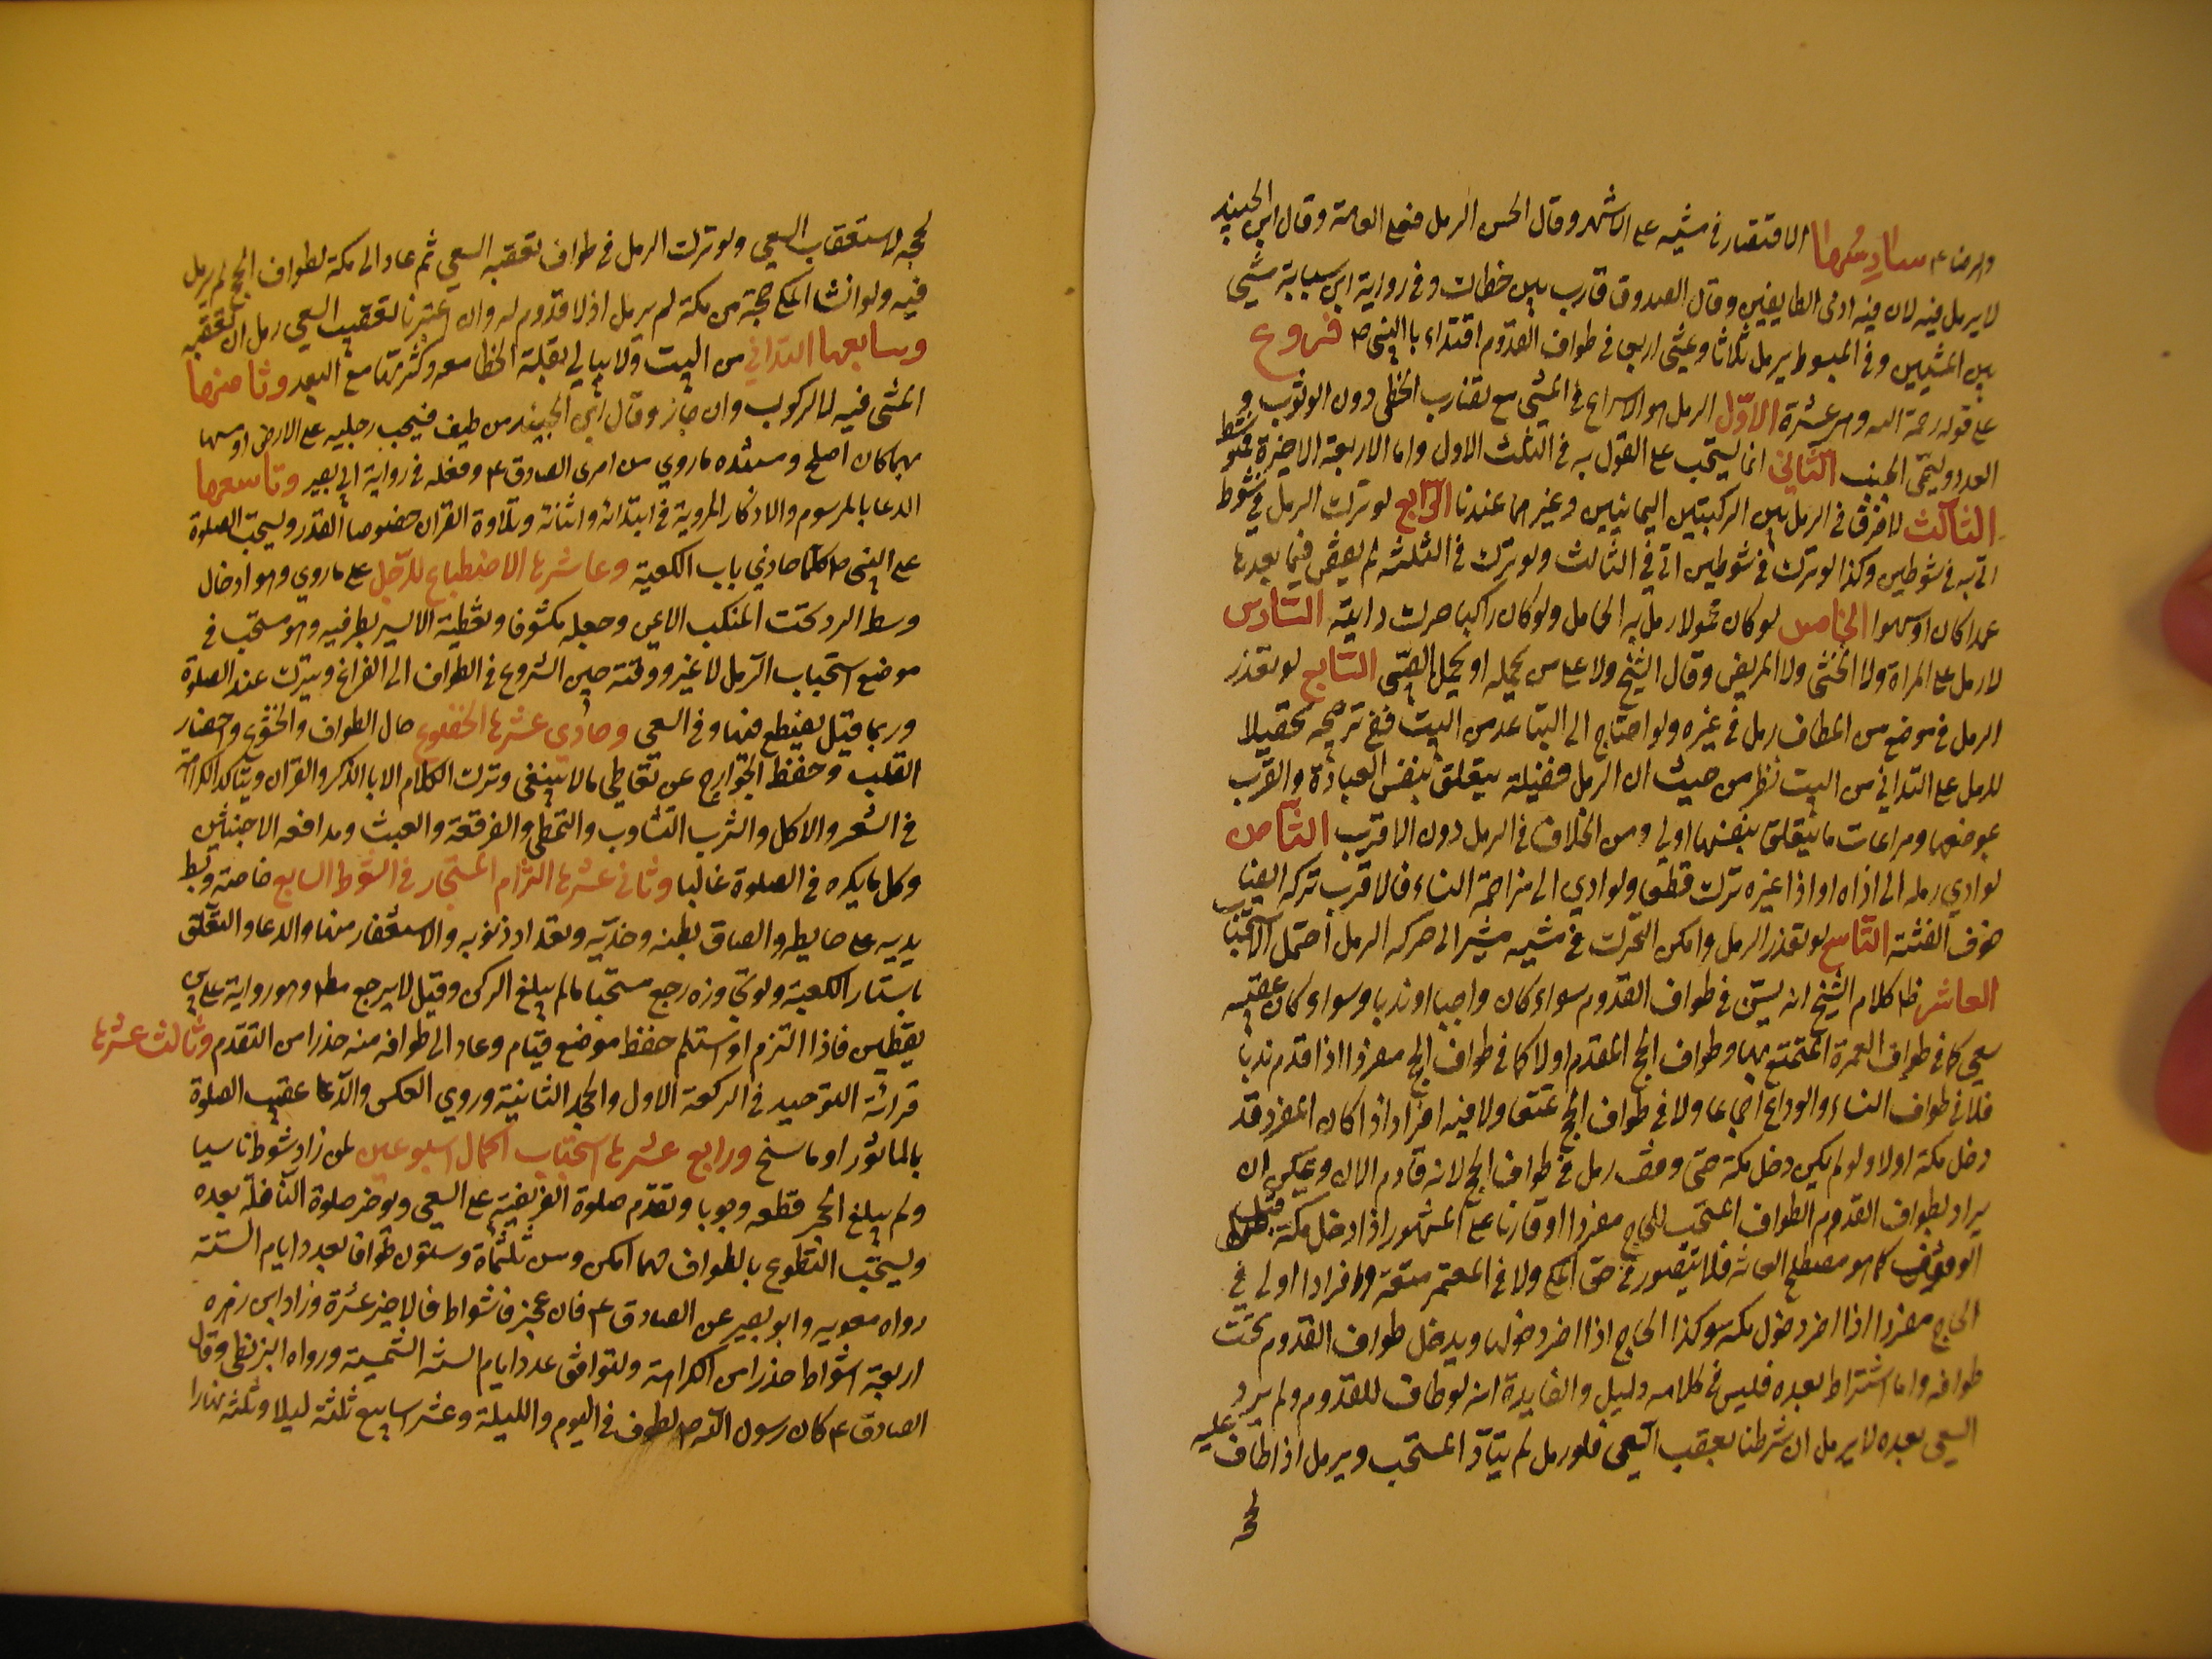 والرضا ع سادسها الاقتصار في مشيه على الاشهر وقال الحسن الرمل فعل العامة وقال ابن الجنيد
لا يرمل فيه لان فيه اذى الطايفين وقال الصدوق قارب بين خطاك وفي رواية ابن سيابة مشي
بين المشيين وفي المبسوط يرمل ثلاثا ويمشي اربعا في طواف القدوم اقتداء بالنبي ص فروع
على قوله رحمة الله وهي عشرة الاول الرمل هو الاسراع في المشي مع تقارب الخطى دون الوثوب و
العدو ويسمى الخبب الثاني انما يستحب على القول به في الثلث الاول واما الاربعة الاخيرة
الثالث لا فرق في الرمل بين الركنيين اليمانيين وغيرهما عندنا الرابع لو ترك الرمل في شوط
اتى به في شوطين وكذا لو ترك في شوطين اتى في الثالث ولو ترك في الثلثة لم يقض فيما بعدها
عمدا كان او سهوا الخامس لو كان محمولا رمل به الحامل ولو كان راكبا حرك دابته السادس
لا رمل على المراة ولا الخنثى ولا المريض وقال الشيخ ولا على من يحمله او يحمل الصبي السابع لو تعذر
الرمل في موضع من المطاف رمل في غيره ولو احتاج الى التباعد من البيت ففي ترجيحه تحصيلا
للرمل على التداني من البيت نظر من حيث ان الرمل فضيلة يتعلق بنفس العبادة والقرب
بموضعها ومراعات ما يتعلق بنفسها اولى ومن الخلاف في الرمل دون الاقرب الثامن
لو ادى رمله الى اذاه او اذا غيره ترك قطعى ولو ادى الى مزاحمة النساء فالاقرب تركه ايضا
خوف الفتنة التاسع لو تعذر الرمل وامكن التحرك في مشيه مشيرا الى حركة الرمل احتمل الاستحباب
العاشر ظا كلام الشيخ انه يسن في طواف القدوم سواء كان واجبا او ندبا وسواء كان عقيبه
سعى كما في طواف العمرة المتمتع بها وطواف الحج المقدم اولا كما في طواف الحج مفردا اذا قدم ندبا
فلا في طواف النساء والوداع اجماعا ولا في طواف الحج تمتعا ولا فيه افرادا اذا كان المفرد قد
دخل مكة اولا ولو لم يكن دخل مكة حتى وقف رمل في طواف الحج لانه قادم الان ويمكن ان
يراد بطواف القدوم الطواف المستحب للحاج مفردا او قارنا على المشهور اذا دخل مكة قبل
الوقوف كما هو مصطلح العامة فلا يتصور في حق المكي ولا في المعتمر متعة وافرادا اولى في
الحاج مفردا اذا اخر دخول مكة وكذا الحاج اذا اخر دخولها ويدخل طواف القدوم تحت
طوافه واما اشتراط بعده فليس في كلامه دليل والفايدة انه لو طاف للقدوم ولم يرد
السعي بعده لا يرمل ان شرطنا تعقب السعي فلو رمل لم يتأد المستحب ويرمل اذا طاف عليه
لحجه
لحجه لاستعقاب السعي ولو ترك الرمل في طواف تعقبه السعي ثم عاد الى مكة لطواف الحج لم يرمل
فيه ولو انشا المكي حجة من مكة لم يرمل اذ لا قدوم له وان اعتبرنا تعقيب السعي رمل ان تعقبه
وسابعها التداني من البيت ولا يبالي بقلة الخطا معه وكثرتها مع البعد وثامنها
المشي فيه لا الركوب وان جاز وقال ابن الجنيد من طيف فيسحب رجليه على الارض او يمسها
بهما كان اصلح ومستنده ما روي من امر الصادق ع وفعله في رواية ابي بصير وتاسعها
الدعا بالمرسوم والاذكار المروية في ابتدائه واثنائه وتلاوة القران خصوصا القدر ويستحب الصلوة
على النبي ص كلما حاذي باب الكعبة وعاشرها الاضطباع للرجل على ما روي وهو ادخال
وسط الردا تحت المنكب الايمن وجعله مكشوفا وتغطية الايسر بطرفيه وهو مستحب في
موضع استحباب الرمل لا غير ووقته حين الشروع في الطواف الى الفراغ ويترك عند الصلوة
وربما قيل يضطبع فيها وفي السعي وحادي عشرها الخضوع حال الطواف والخشوع واحضار
القلب وحفظ الجوارح عن تعاطي مالا ينبغي وترك الكلام الا بالذكر والقران ويتاكد الكراهة
في الشعر والاكل والشرب التثاوب والتمطي والفرقعة والعبث ومدافعه الاخبثين
وكل ما يكره في الصلوة غالبا وثاني عشرها التزام المستجار في الشوط السابع خاصة وبسط
يديه على حايطه والصاق بطنه وخديه وتعداد ذنوبه والاستغفار منها والدعا والتعلق
باستار الكعبة ولو تجاوزه رجع مستحبا ما لم يبلغ الركن وقيل لا يرجع مط وهو رواية علي بن
يقطين فاذا التزم او استلم حفظ موضع قيام وعاد الى طوافه منه حذرا من التقدم وثالث عشرها
قرائة التوحيد في الركعة الاول والجحد الثانية وروي العكس والدعا عقيب الصلوة
بالماثور او ما سنح ورابع عشرها استحباب اكمال اسبوعين لمن زاد شوطا ناسيا
ولم يبلغ الحجر قطعه وجوبا ويقدم صلوة الفريضة على السعي ويوخر صلوة النافلة بعده
ويستحب التطوع بالطواف مهما امكن وسن ثلثماة وستون طوافا بعدد ايام السنة
رواه معويه وابو بصير عن الصادق ع فان عجز فاشواط فالاخير عشرة وزاد ابن زهره
اربعة اشواط حذرا من الكراهة ولتوافق عدد ايام السنة الشمسية ورواه البزنطي وقال
الصادق ع كان رسول الله ص يطوف في اليوم والليلة وعشر اسابيع ثلثة ليلا وثلثة نهارا